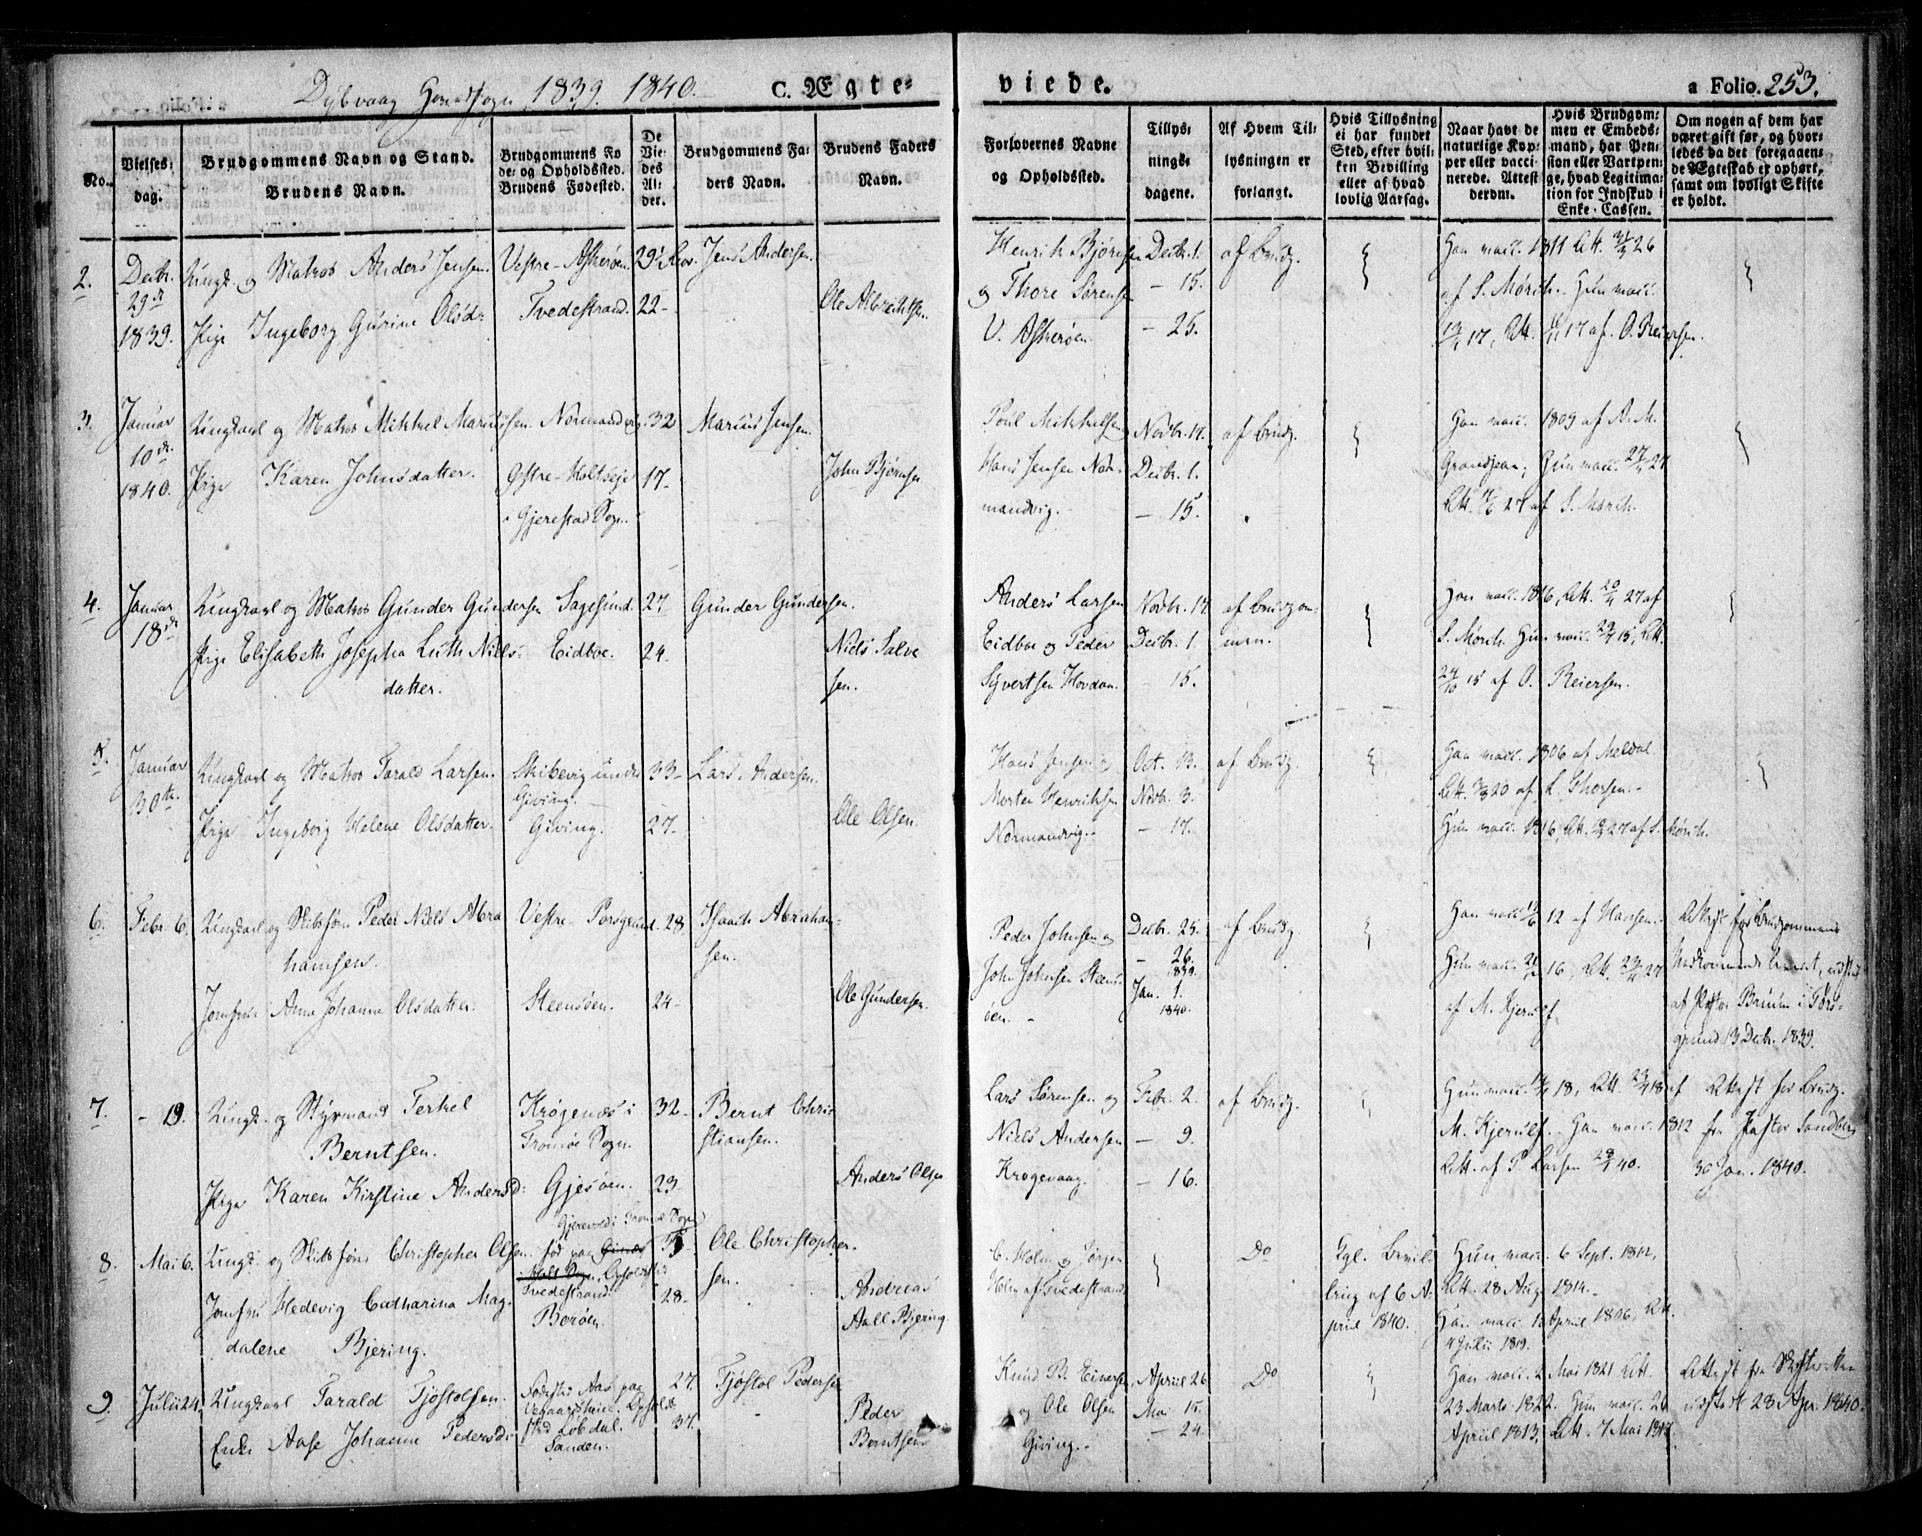 Dybvaag Hovedsogn 1839. 1840.
C. Ægte-
viede.
a Folio. 253.
No.
Vielses-
dag.
Brudgommens Navn og Stand.
Brudens Navn.
Brudgommens Fø
de- og Opholdssted.
Brudens Fødested.
De
Vie-
des
Al-
der.
Brudgommens Fa-
ders Navn.
Brudens Faders
Navn.
Forlovernes Navne
og Opholdssted.
Tillys-
nings-
dagene.
Af Hvem Til-
lysningen er
forlangt.
Hvis Tillysning
ei har fundet
Sted, efter hvil-
ken Bevilling
eller af hvad
lovlig Aarsag.
Naar havt de
naturlige Kop-
per eller vacci-
nerede. Attest
derom.
Hvis Brudgom-
men er Embeds-
mand, har Pen-
sion eller Vartpen-
ge, hvad Legitima-
tion for Indskud i
Enke-Cassen.
Om nogen af dem har
været gift før, og hvor-
ledes da det foregaaen-
de Ægteskab er ophørt,
samt om lovligt Skifte
er holdt.
2.
Decbr.
29de
1839.
Ungk. og Matros Anders Jensen.
Pige Ingeborg Gurine Olsd.
Vestre-Askerøen
Tvedestrand.
29
22-
Jens Andersen.
Ole Albrechtsen.
Henrik Bjørnsen
og Thore Sørensen
V. Askerøen.
Decbr. 1.
- 15.
- 25.
af Brudg.
Han vacc. 1811 Att. 26
af S. Mørch. Hun vacc.
17, Att. 17 af O. Reiersen.
3.
Januar
10de
1840.
Ungkarl og Matros Mikkel Mariussen.
Pige Karen Johnsdatter.
Normandvig.
Østre-Holtseje
i Gjerestad Sogn.
32
17-
Marius Jensen.
John Bjørnsen
Poul Mikkelsen
Hans Jensen Nor-
mandvig.
Novbr. 17.
Decbr. 1.
- 15.
af Brudg.
Han vacc. 1809 af A. M.
Grandjean; Hun vacc. 27
Att. 27 af S. Mørch.
4.
Januar
18de
Ungkarl og Matros Gunder Gundersen
Pige Elisabeth Josepha Luth Niels-
datter.
Sagesund.
Eidboe.
27.
24.
Gunder Gundersen.
Niels Salve
sen.
Anders Larsen
Eidboe og Peder
Syvertsen Hovdan.
Novbr. 17
Decbr. 1.
- 15.
af Brudgom-
men.
Han vacc. 1816, Att. 20/4 27 af
S. Mørch. Hun vacc. 15, Att.
24/10 15 af O. Reiersen.
5.
Januar
30te
Ungkarl og Matros Tarald Larsen.
Pige Ingebvig Helene Olsdatter.
Skibevig under
Giving.
Giving.
33-
27-
Lars Andersen.
Ole Olsen.
Hans Jensen og
Morten Henriksen
Normandvig.
Oct. 13.
Novbr. 3.
- 17.
af Brudg.
Han vacc. 1806 af Meldal
Att. 20 af L. Thorsen.
Hun vacc. 1816, Att. 27 af S. Mørch.
6.
Febr. 6.
Ungkarl og Skibsfører Peder Niels Abra
hamsen.
Jomfrue Anne Johanne Olsdatter.
Vestre-Porsgrund.
Steensøen.
28.
24-
Isaach Abraham-
sen.
Ole Gundersen.
Peder Johnsen og
John Johnsen Steens
øen.
Decbr. 25.
- 26.
1839.
Jan. 1.
1840.
af Brudg.
Han vacc. 12 af Hansen.
Hun vacc. 16, Att. 27
af M. Kjerulf.
Attest for Brudgommens
Vedkommende, udstedt
af Pastor Bruun i Pors-
grund 13 Decbr. 1839.
7.
- 19.
Ungk. og Styrmand Terkel
Berntsen.
Pige Karen Kirstine Andersd:
Krøgenæs i
Tromøe Sogn.
Gjesøen.
32-
23-
Bernt Chri
stiansen.
Anders Olsen
Lars Sørensen og
Niels Andersen
Krogevaag.
Febr. 2.
- 9.
- 16.
af Brudg.
Hun vacc. 18, Att. 18 af
M. Kjerulf. Han vacc. 1812
Att. af P Larsen 40.
Attest for Brudg.
fra Pastor Sandberg
30 Jan. 1840.
8.
Mai 6.
Ungk. og Skibsfører Christopher Olsen
Jomfru Hedevig Catharina Mag-
dalene Bjering.
Tromøe Sogn
Tvedestrand.
Borøen.
28.
Ole Christopher-
sen.
Andreas
Aall Bjering
C. Holm og Jørgen
Holm af Tvedestrand
Do
Kgl. Bevil-
ling af 6 A-
pril 1840.
Hun vacc. 6 Sept. 1812,
Att. 28 Aug. 1814.
Han vacc. 12 April 1806, Att.
4 Julii 1819.
9.
Julii 24.
Ungkarl Tarald Tjøstolsen.
Enke Aase Johanne Pedersd:
Fødested Aas paa
Vegaarsheien. Ophold
sted Løbdal.
Sanden.
27.
37.
Tjøstol Pedersen
Peder
Berntsen
Knud B. Einersen
og Ole Olsen
Giving.
April 26
Mai 15.
- 24.
Do
Han vacc. 2 Mai 1821 Att.
23 Marts 1822. Hun vacc. 20
April 1813, Att. 7 Mai 1817.
Attest fra Skifteretten
udstedt 28 Apr. 1840.